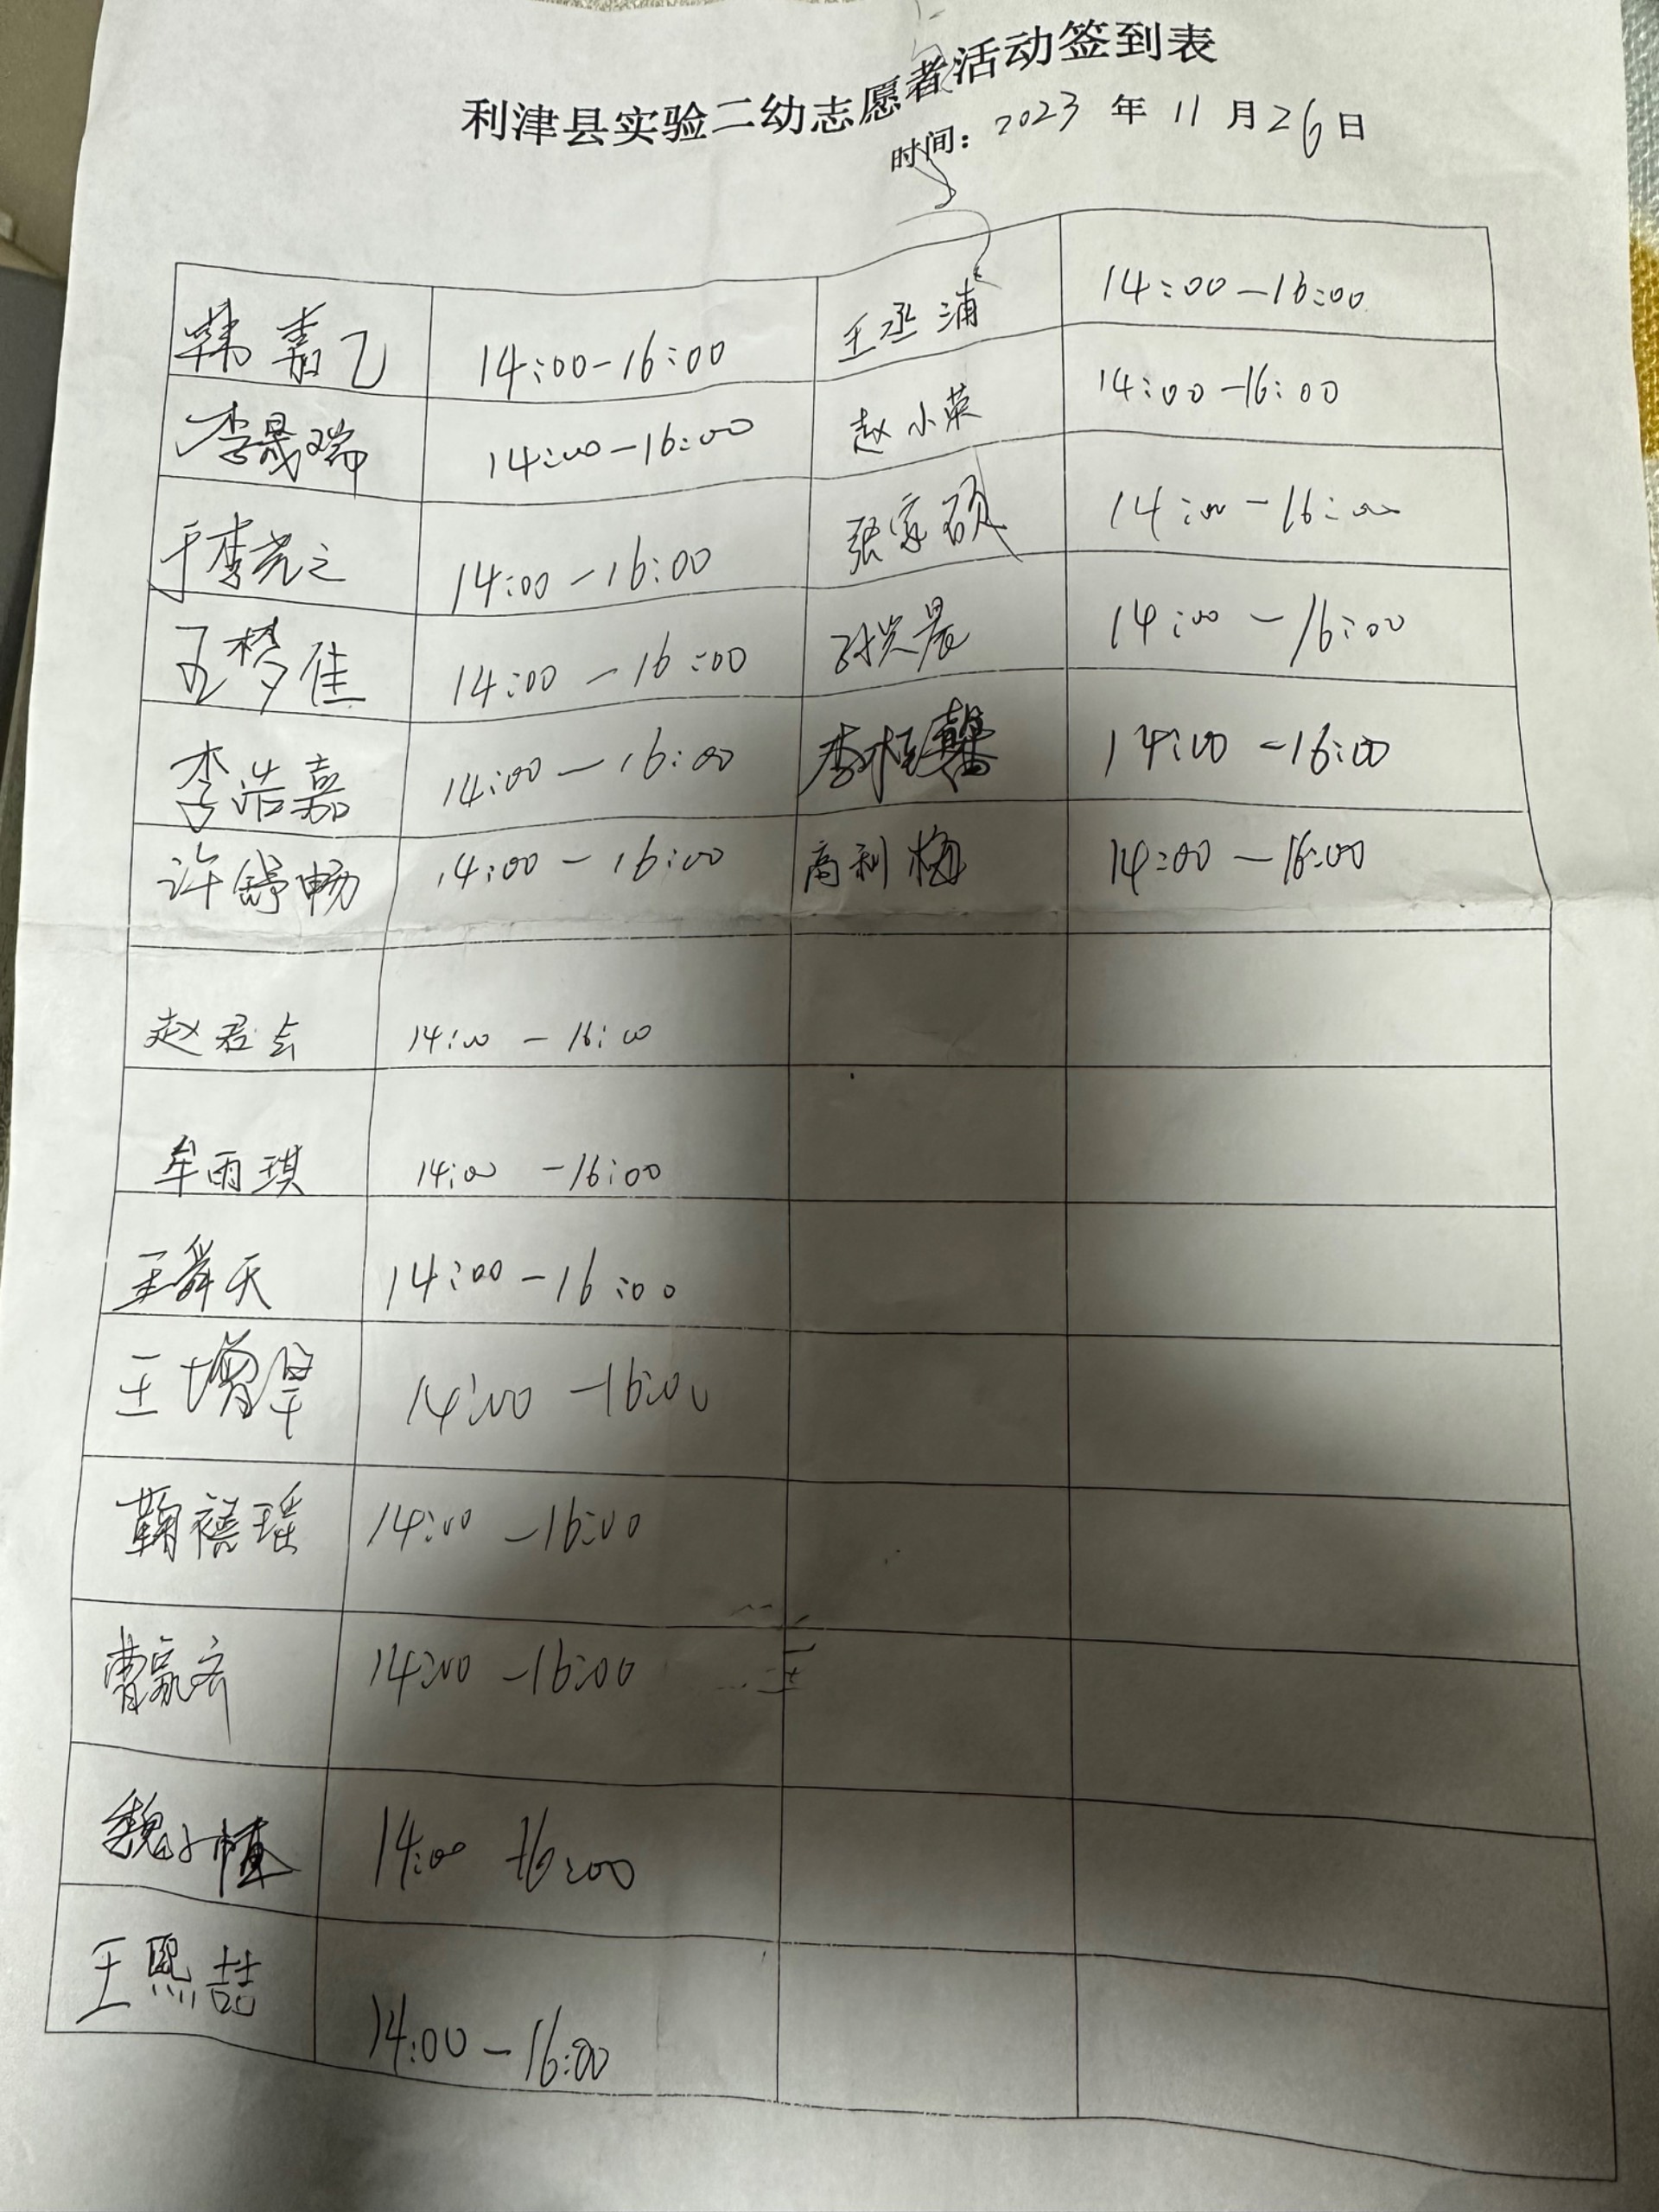 利津县实验二幼志愿者活动签到表
时间：2023年11月26日
韩嘉乙 14:00-16:00 王丞浦 14:00-16:00
李晟瑞 14:00-16:00 赵小英 14:00-16:00
于李尧之 14:00-16:00 张家硕 14:00-16:00
王梦佳 14:00-16:00 14:00-16:00
李浩嘉 14:00-16:00 14:00-16:00
许舒畅 14:00-16:00 高利梅 14:00-16:00
赵君会 14:00-16:00
牟雨琪 14:00-16:00
王舜天 14:00-16:00
王增罕 14:00-16:00
鞠禧瑶 14:00-16:00
14:00-16:00
14:00-16:00
王熙喆 14:00-16:00